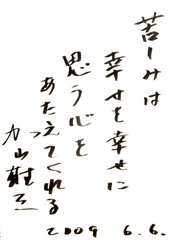 苦しみは
幸せを幸せに
思う心を
あたえてくれる
力山
2009 6.6.